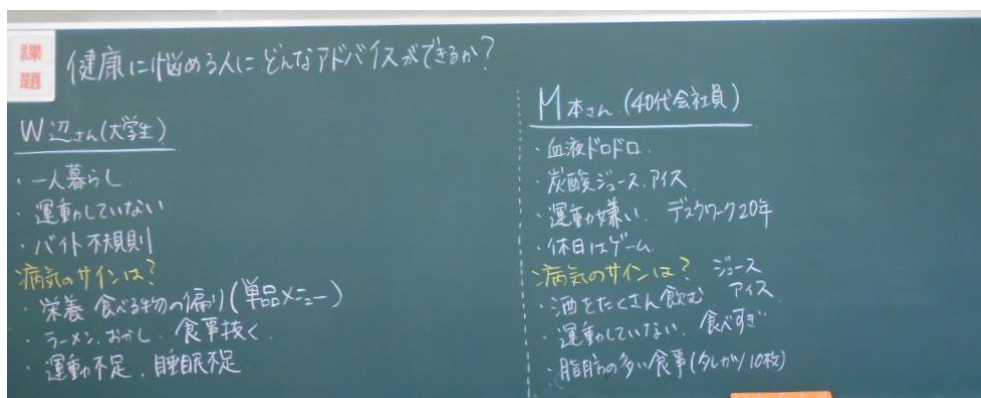 課題
健康に悩める人にどんなアドバイスができるか？
W辺さん(大学生)
・一人暮らし
・運動していない
・バイト不規則
病気のサインは？
・栄養 食べる物の偏り(単品メニュー)
・ラーメン、おかし、食事抜く
・運動不足、睡眠不足
M本さん(40代会社員)
・血液ドロドロ
・炭酸ジュース、アイス
・運動嫌い、デスクワーク20年
・休日はゲーム
病気のサインは？ ジュース
・酒をたくさん飲む アイス
・運動していない、食べすぎ
・脂肪の多い食事(タレカツ10枚)